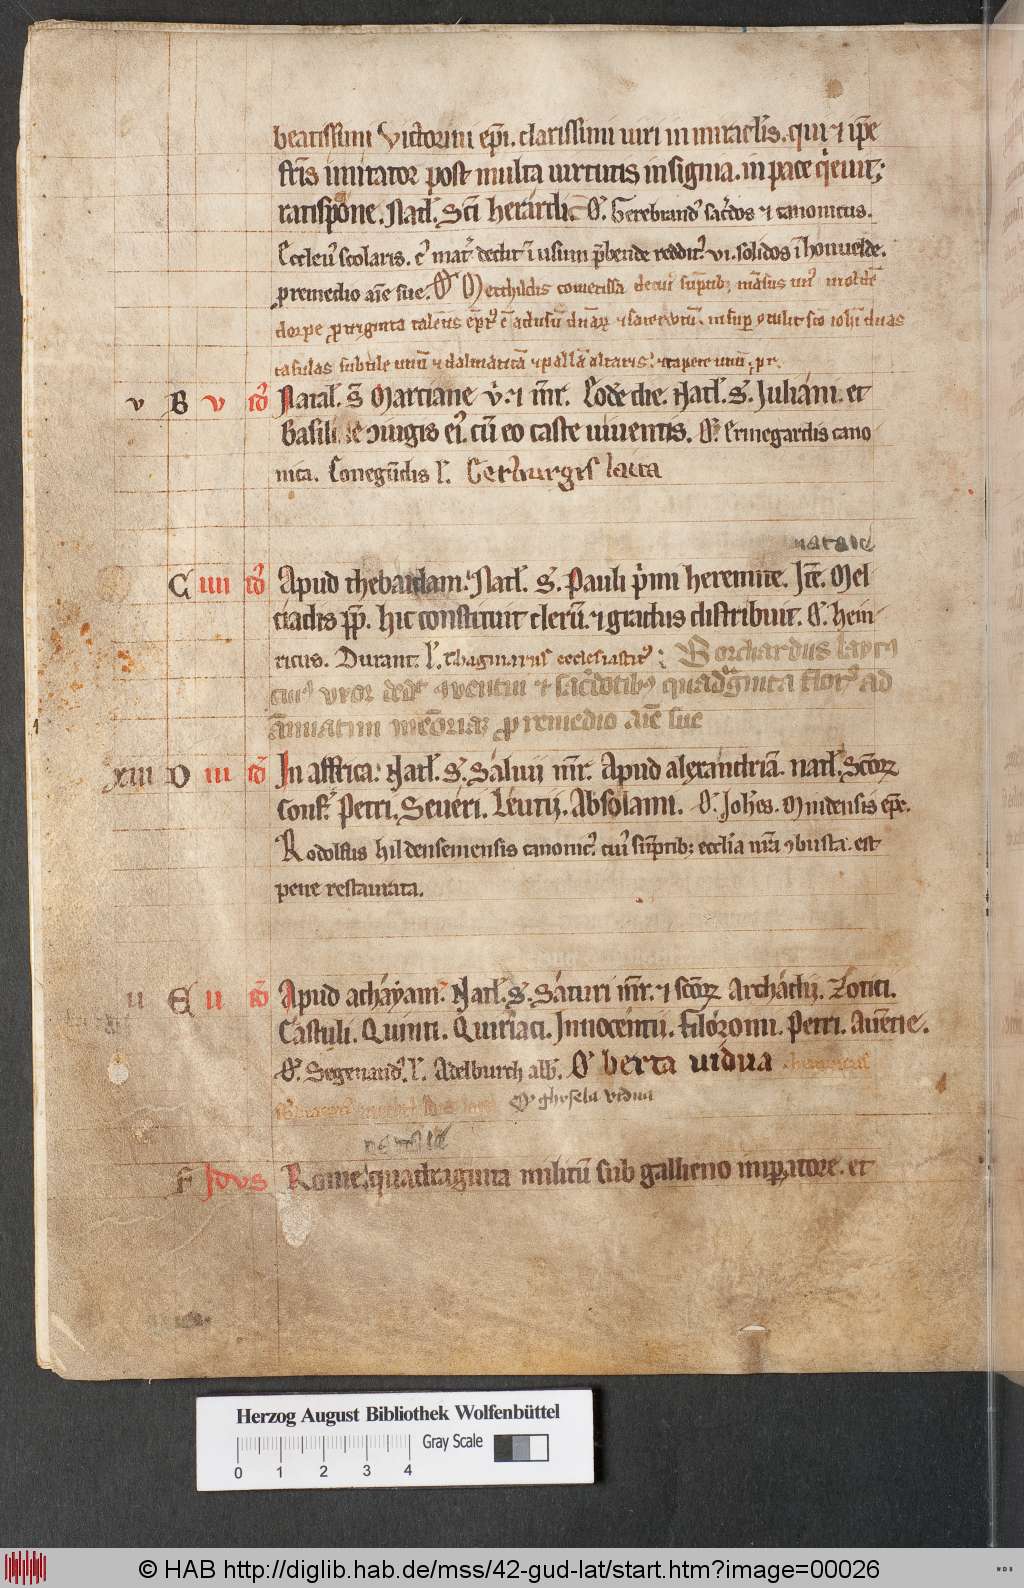 beatissimi Victorini ep̄i. clarissimi uiri in miraclis. qui ⁊ ip̄e
fr̄is imitator post multa uirtutis insignia. in pace q̇euit;
ratispone. Natl̓. Sc̄i herardi. O̓. Gerebrand᷒ sac̓dos ⁊ canonicus.
scolaris. dedit ī usum p̄bende reddit᷒. vi. solidos ī honuelde.
p remedio aīe sue. O̓ Mechtildis cometissa
dorpe
casulas subtile unū ⁊ dalmaticā ⁊ pallā altaris. ⁊ tapete unū.
v B v id᷒ Natal̓. S̄ Marciane v̓. ⁊ m̄r. Eodē die. Natl̓. S. Juliani. et
basilisse ꝯiugis ei᷒. cū eo caste uiuentis. O̓. Ermegardis cano
nica. Conegūdis l̓. Gerburgis laica
natale
C iiii id᷒ Apud thebaidam. Natl̓. S. Pauli p̓mi heremite. Jt̄. Mel
ciadis pp̄. hic constituit clerū. ⁊ gradus distribuit. O̓. hein
ricus. Durant. l̓. thagmarus ecclesiastic᷒: Borchardus layc᷒
cui᷒ vxor ded̓t ꝯventui ⁊ sac̓dotib᷒ quadginta flor᷒ ad
ānuatim mēoriaꝫ p remedio aīe sue
xiii D iii id᷒ In affrica. Natl̓. S. Saluii m̄r. Apud alexandriā. natl̓. Sc̄oꝝ
Conf᷒. Petri. Seueri. Leucii. Absolani. O̓. Joh̄es. Mindensis ep̄c.
Rodolfus hildensemensis canonic᷒. cui᷒ sūptib; eccl̄ia nr̄a ꝯbusta. est
pene restaurata.
ii E ii id᷒ Apud achayam. Natl̓. S. Saturi m̄r. ⁊ sc̄oꝝ Archadii. Zotici.
Castuli. Quinti. Quiriaci. Innocentii. Filoromi. Petri. Auētie.
O̓. Segenand᷒. l̓. Adelburch alb̓. O̓ berta uidua henricus
O̓ ghysela vidua
natale
F Idus Rome. quadraginta militū sub gallieno imp̄atore. et
Herzog August Bibliothek Wolfenbüttel
Gray Scale
0 1 2 3 4
© HAB http://diglib.hab.de/mss/42-gud-lat/start.htm?image=00026